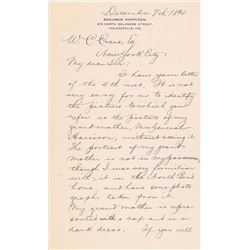 December 7th 1894
BENJAMIN HARRISON,
674 NORTH DELAWARE STREET,
INDIANAPOLIS, IND.
W. C. Crane, Esq
New York City
My dear Sir:
I have your letter
of the 4th inst. It is not
very easy for me to identify
the picture to which you
refer as the picture of my
grand mother, Mrs General
Harrison, without seeing it.
The portrait of my grand
mother is not in my possession
though I was very familiar
with it, in the North Bend
home, and have some photo
graphs taken from it.
My grand mother is repre
sented with a cap and in a
dark dress. If you will